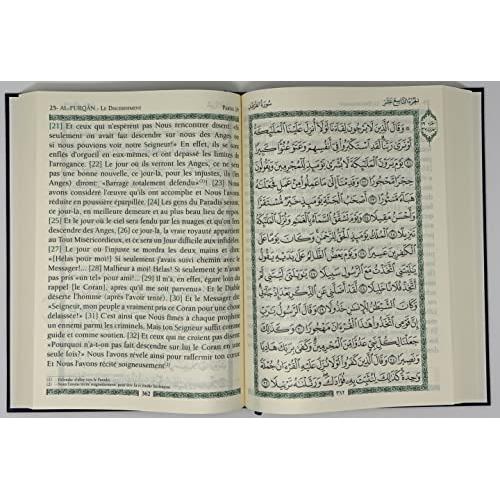 25- AL-FURQÂN - LE DISCERNEMENT
[21] Et ceux qui n'espèrent pas Nous rencontrer disent: «Si
seulement on avait fait descendre sur nous des Anges ou
si nous pouvions voir notre Seigneur!» En effet, ils se sont
enflés d'orgueil en eux-mêmes, et ont dépassé les limites de
l'arrogance. [22] Le jour où ils verront les Anges, ce ne
sera pas une bonne nouvelle, ce jour-là, pour les injustes, ils (les
Anges) diront: «Barrage totalement défendu»(1)! [23] Nous
avons considéré l'œuvre qu'ils ont accomplie et Nous l'avons
réduite en poussière éparpillée. [24] Les gens du Paradis seront,
ce jour-là, en meilleure demeure et au plus beau lieu de repos
[25] et le jour où le ciel sera fendu par les nuages et qu'on fera
descendre des Anges, [26] ce jour-là, la vraie royauté appartient
au Tout Miséricordieux, et ce sera un Jour difficile aux infidèles.
[27] Le jour où l'injuste se mordra les deux mains et dira:
«[Hélas pour moi!] Si seulement j'avais suivi chemin avec le
Messager!... [28] Malheur à moi! Hélas! Si seulement je n'avais
pas pris «un tel» pour ami!... [29] Il m'a, en effet, égaré loin du
rappel [le Coran], après qu'il me soit parvenu». Et le Diable
déserte l'homme (après l'avoir tenté). [30] Et le Messager dit:
«Seigneur, mon peuple a vraiment pris ce Coran pour une chose
délaissée!» [31] C'est ainsi que Nous fîmes à chaque prophète
un ennemi parmi les criminels. Mais ton Seigneur suffit comme
guide et comme soutien. [32] Et ceux qui ne croient pas disent:
«Pourquoi n'a-t-on pas fait descendre sur lui le Coran en une
seule fois?» Nous l'avons révélé ainsi pour raffermir ton cœur.
Et Nous l'avons récité soigneusement(2).
362
الجزء التاسع عشر
سورة الفرقان
۞ وَقَالَ الَّذِينَ لَا يَرْجُونَ لِقَاءَنَا لَوْلَا أُنزِلَ عَلَيْنَا الْمَلَٰٓئِكَةُ
أَوْ نَرَىٰ رَبَّنَا لَقَدِ اسْتَكْبَرُوا فِي أَنفُسِهِمْ وَعَتَوْ عُتُوًّا كَبِيرًا
٢١ يَوْمَ يَرَوْنَ الْمَلَٰٓئِكَةَ لَا بُشْرَىٰ يَوْمَئِذٍ لِّلْمُجْرِمِينَ وَيَقُولُونَ
حِجْرًا مَّحْجُورًا ٢٢ وَقَدِمْنَا إِلَىٰ مَا عَمِلُوا مِنْ عَمَلٍ فَجَعَلْنَٰهُ
هَبَاءً مَّنثُورًا ٢٣ أَصْحَٰبُ الْجَنَّةِ يَوْمَئِذٍ خَيْرٌ مُّسْتَقَرًّا
وَأَحْسَنُ مَقِيلًا ٢٤ وَيَوْمَ تَشَقَّقُ السَّمَاءُ بِالْغَمَٰمِ وَنُزِّلَ الْمَلَٰٓئِكَةُ
تَنزِيلًا ٢٥ الْمُلْكُ يَوْمَئِذٍ الْحَقُّ لِلرَّحْمَٰنِ وَكَانَ يَوْمًا عَلَى
الْكَٰفِرِينَ عَسِيرًا ٢٦ وَيَوْمَ يَعَضُّ الظَّالِمُ عَلَىٰ يَدَيْهِ يَقُولُ
يَٰلَيْتَنِي اتَّخَذْتُ مَعَ الرَّسُولِ سَبِيلًا ٢٧ يَٰوَيْلَتَىٰ لَيْتَنِي لَمْ
أَتَّخِذْ فُلَانًا خَلِيلًا ٢٨ لَّقَدْ أَضَلَّنِي عَنِ الذِّكْرِ بَعْدَ إِذْ جَاءَنِي
وَكَانَ الشَّيْطَٰنُ لِلْإِنسَٰنِ خَذُولًا ٢٩ وَقَالَ الرَّسُولُ
يَٰرَبِّ إِنَّ قَوْمِي اتَّخَذُوا هَٰذَا الْقُرْءَانَ مَهْجُورًا ٣٠ وَكَذَٰلِكَ
جَعَلْنَا لِكُلِّ نَبِيٍّ عَدُوًّا مِّنَ الْمُجْرِمِينَ وَكَفَىٰ بِرَبِّكَ هَادِيًا
وَنَصِيرًا ٣١ وَقَالَ الَّذِينَ كَفَرُوا لَوْلَا نُزِّلَ عَلَيْهِ الْقُرْءَانُ جُمْلَةً
وَٰحِدَةً كَذَٰلِكَ لِنُثَبِّتَ بِهِ فُؤَادَكَ وَرَتَّلْنَٰهُ تَرْتِيلًا ٣٢
٣٦٢